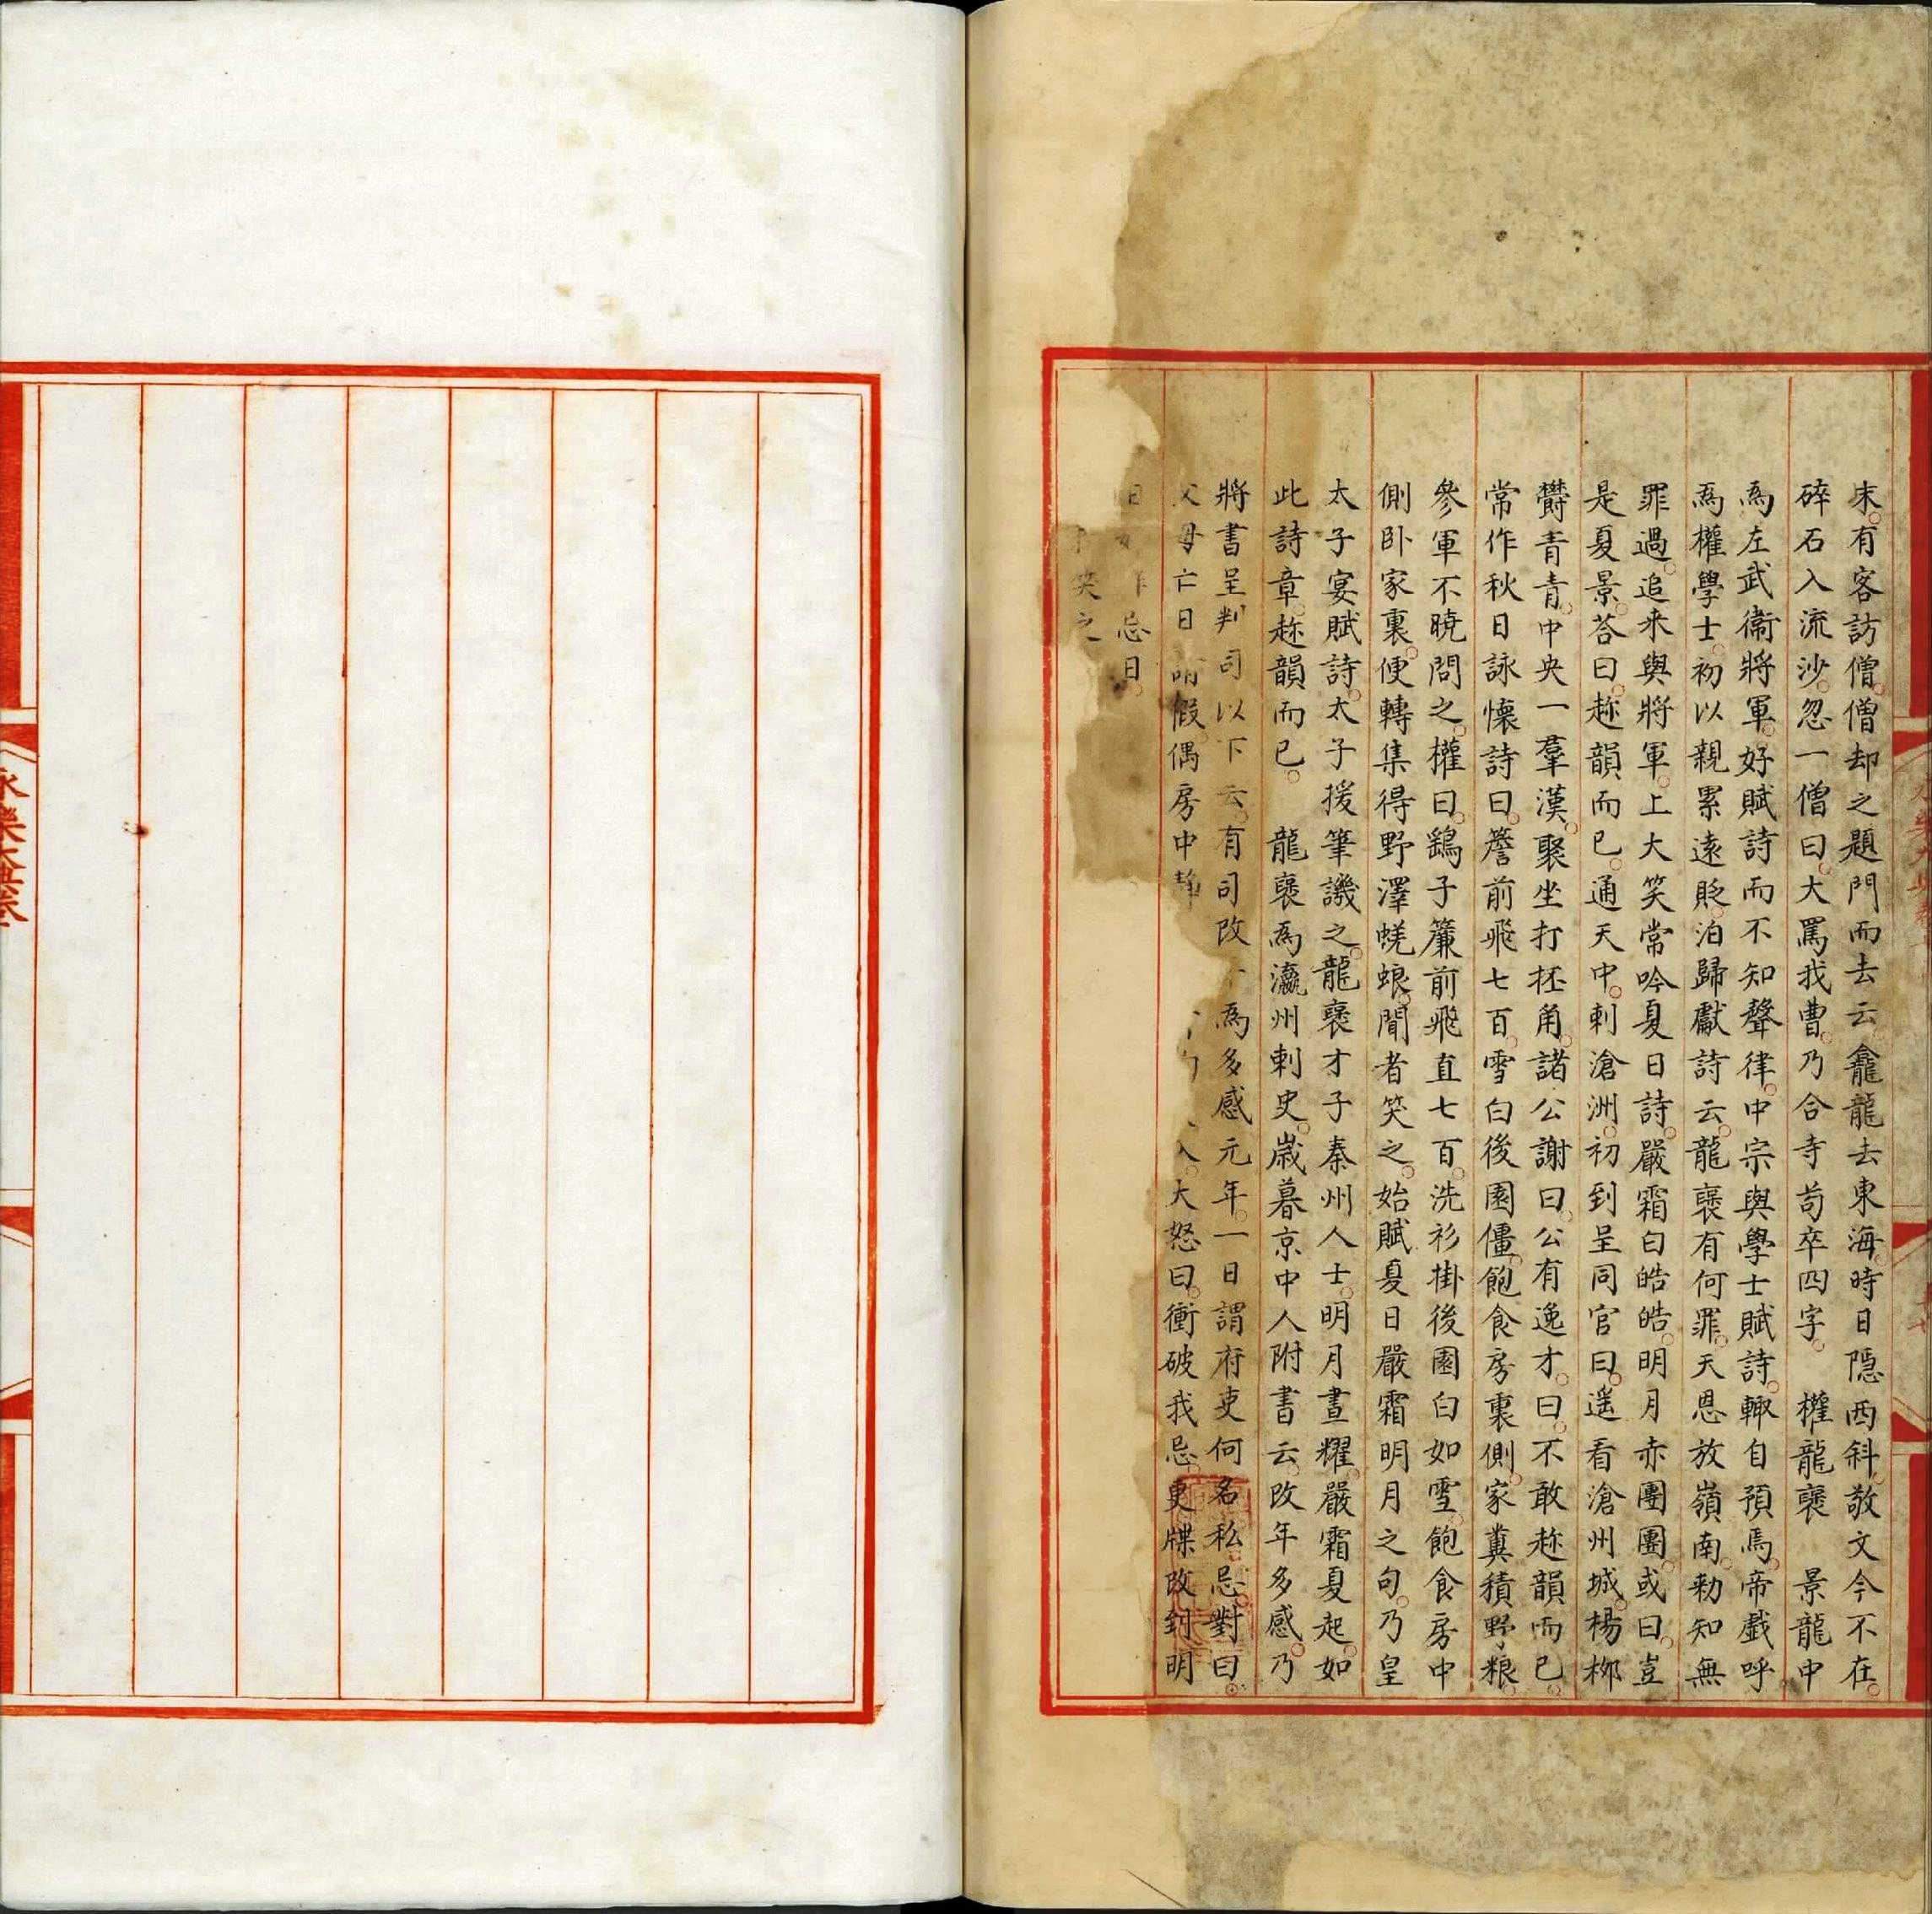 末有客訪僧僧却之題門而去云龕龍去東海時日隱西斜敬文今不在
碎石入流沙忽一僧曰大罵我曹乃合寺苟卒四字 權龍褒 景龍中
爲左武衞將軍好賦詩而不知聲律中宗與學士賦詩輙自預焉帝戲呼
爲權學士初以親累遠貶洎歸獻詩云龍褒有何罪天恩放嶺南勅知無
罪過追来與將軍上大笑常吟夏日詩嚴霜白皓皓明月赤團團或曰豈
是夏景荅曰趂韻而已通天中刺滄洲初到呈同官曰遥看滄州城楊桞
欝青青中央一羣漢聚坐打抷角諸公謝曰公有逸才曰不敢趂韻而已
常作秋日詠懷詩曰簷前飛七百雪白後園僵飽食房裏側家糞積野粮
參軍不曉問之權曰鷂子簾前飛直七百洗衫掛後園白如雪飽食房中
側卧家裏便轉集得野澤蜣蜋聞者笑之始賦夏日嚴霜明月之句乃皇
太子宴賦詩太子援筆譏之龍褒才子秦州人士明月晝耀嚴霜夏起如
此詩章趂韻而已 龍褒爲瀛州刺史歲暮京中人附書云改年多感乃
將書呈判司以下云有司改爲多感元年一日謂府吏何名私忌對曰
父母亡日請假偶房中静大怒曰衝破我忌更牒改到明
日忌日
笑之
永樂大典卷